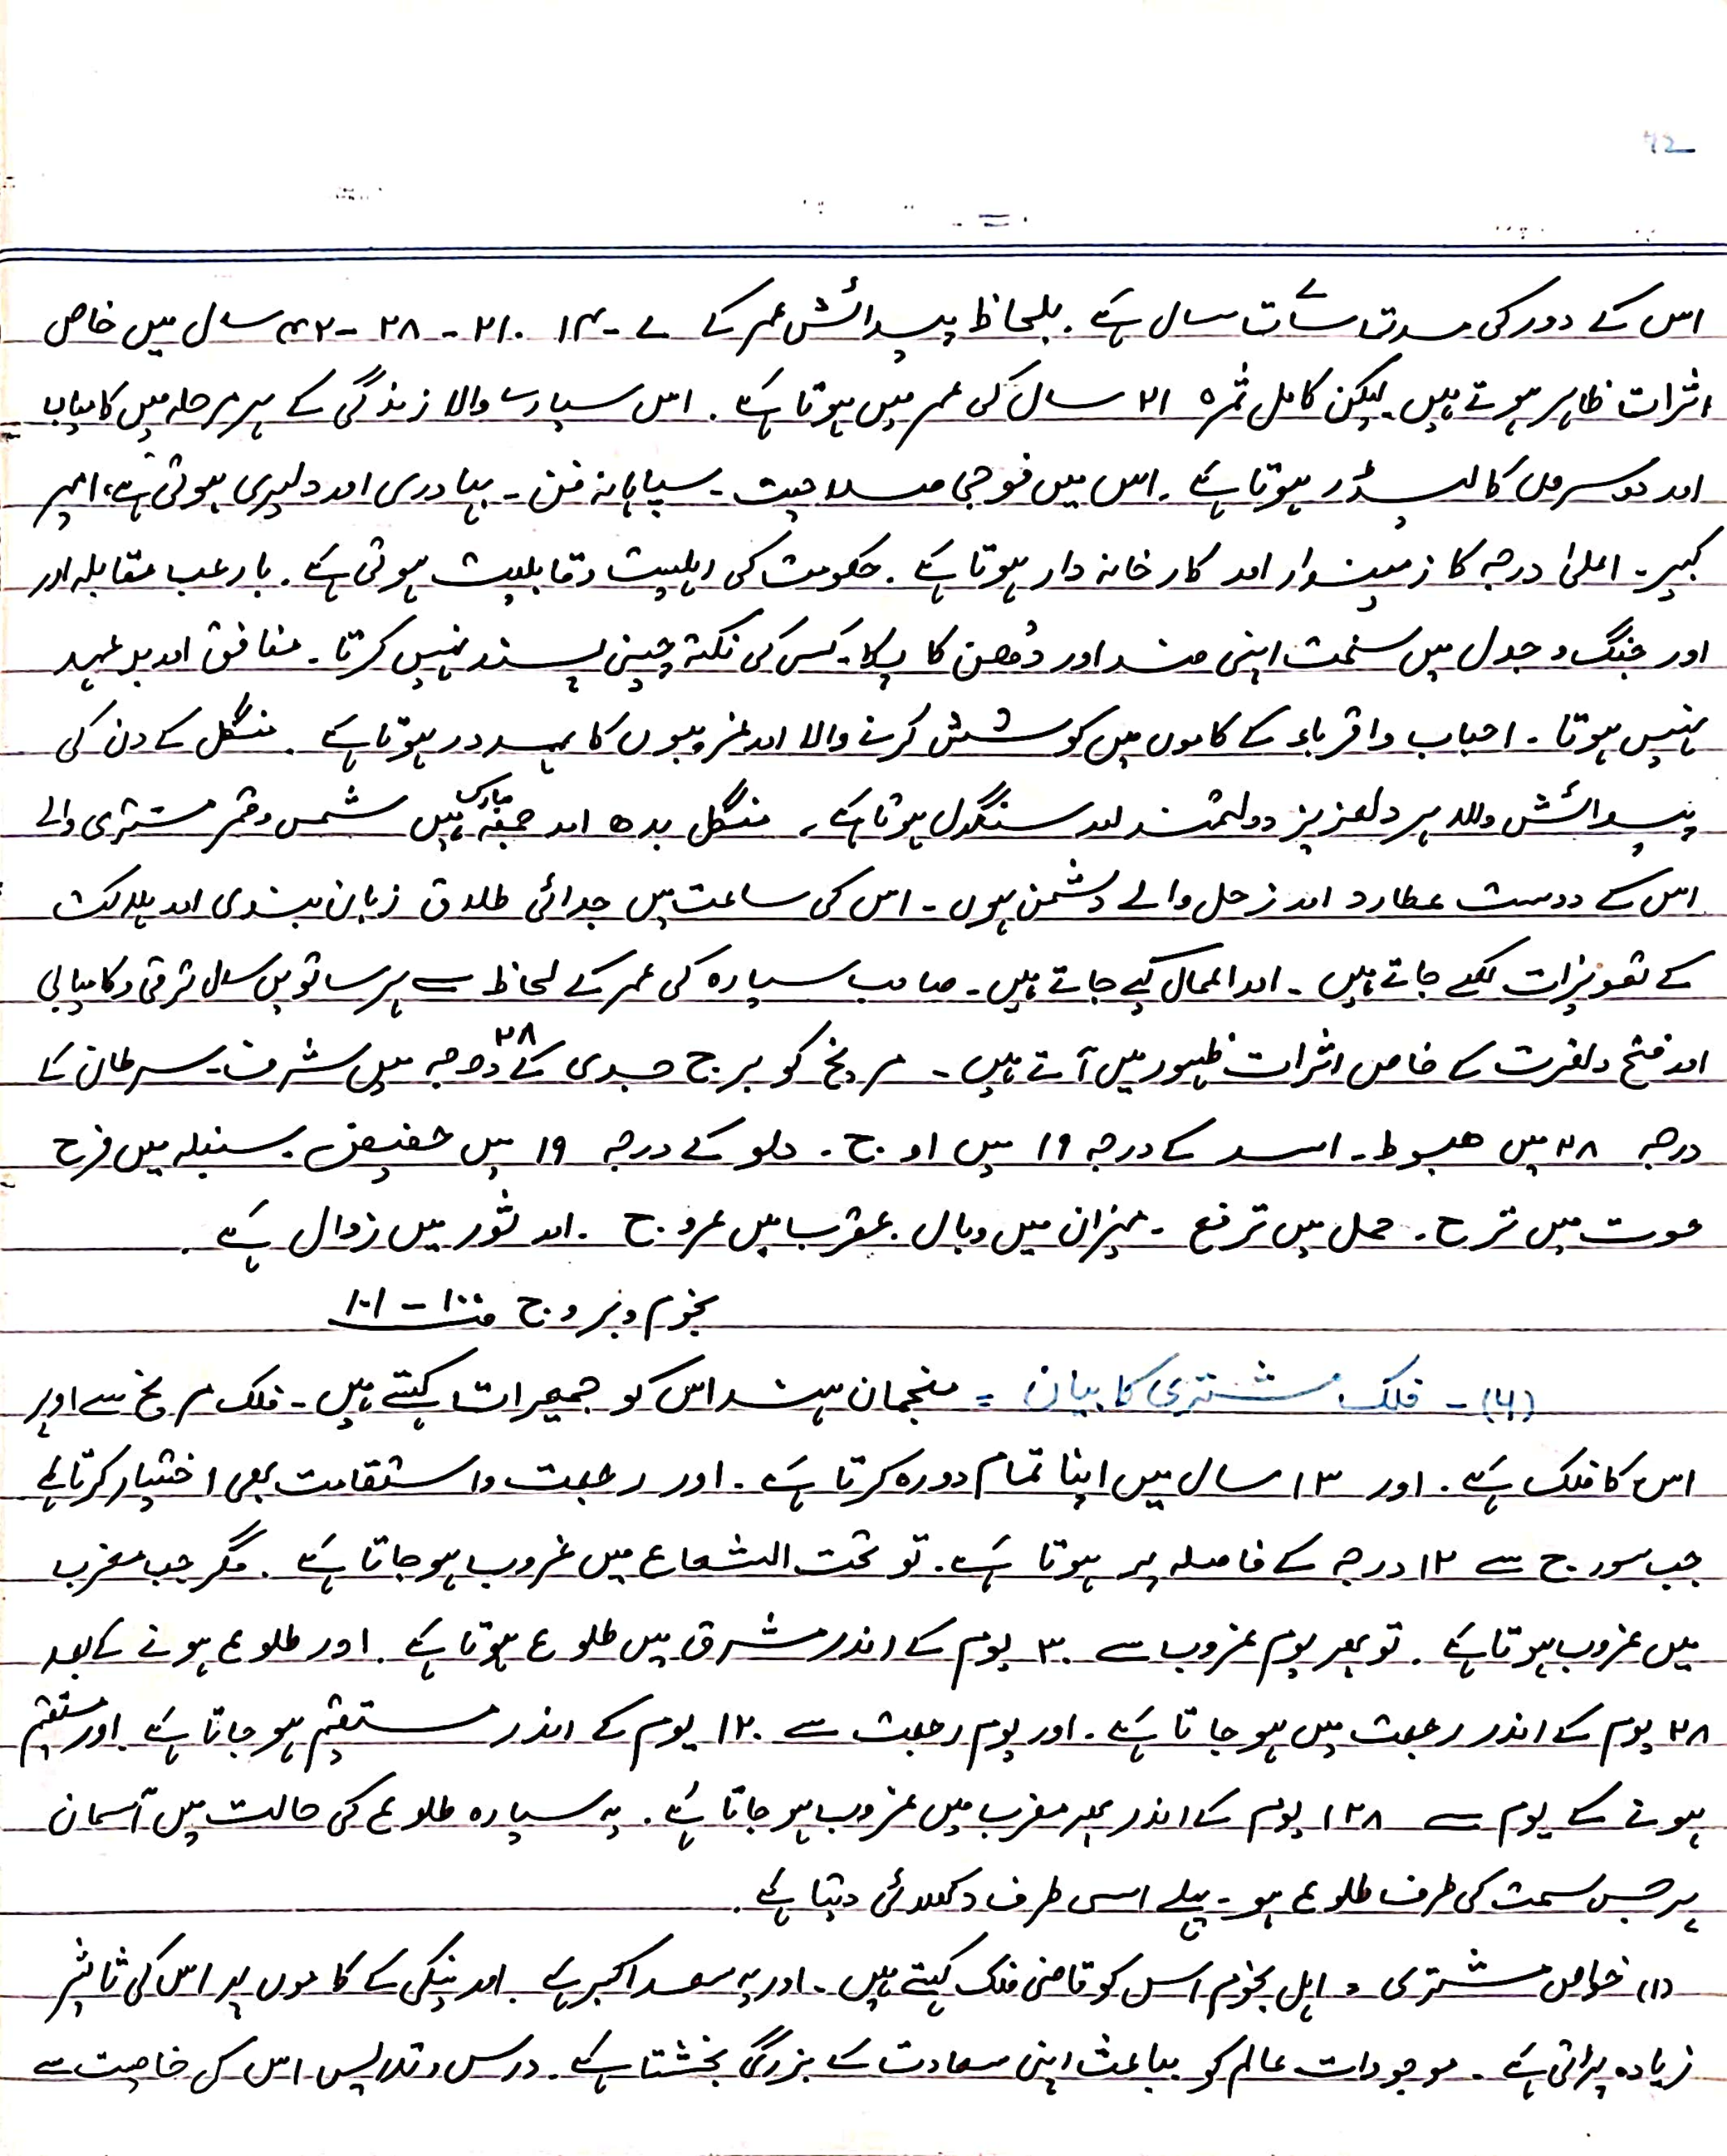 42
اس کے دور کی مدت سات ۷ سال ہے۔ بلحاظ پیدائش عمر کے ۷-۱۴۔ ۲۱۔ ۲۸-۴۲ سال میں خاص
اثرات ظاہر ہوتے ہیں۔ لیکن کامل ثمرہ ۲۱ سال کی عمر میں ہوتا ہے۔ اس سیارے والا زندگی کے ہر مرحلہ میں کامیاب
اور دوسروں کا لیڈر ہوتا ہے۔ اس میں فوجی صلاحیت۔ سپاہانہ فن۔ بہادری اور دلیری ہوتی ہے، امیر
کبیر۔ اعلیٰ درجہ کا زمیندار اور کارخانہ دار ہوتا ہے۔ حکومت کی اہلیت وقابلیت ہوتی ہے۔ بارعب مقابلہ اور
اور جنگ و جدل میں سخت اپنی ضد اور دُھن کا پکا۔ کسی کی نکتہ چینی پسند نہیں کرتا۔ منافق اور بدعہد
نہیں ہوتا۔ احباب واقرباء کے کاموں میں کوشش کرنے والا اور غریبوں کا ہمدرد ہوتا ہے۔ منگل کے دن کی
پیدائش والا ہر دلعزیز دولتمند اور سنگدل ہوتا ہے۔ منگل بدھ اور جمعہ مبارک ہیں شمس وقمر مشتری والے
اس کے دوست عطارد اور زحل والے دشمن ہوں۔ اس کی ساعت میں جدائی طلاق زبان بندی اور ہلاکت
کے تعویزات لکھے جاتے ہیں۔ اور اعمال کیے جاتے ہیں۔ صاحب سیارہ کی عمر کے لحاظ سے ہر ساتویں سال ترقی وکامیابی
اور فتح ونصرت کے خاص اثرات ظہور میں آتے ہیں۔ مریخ کو برج جدی کے ۲۸ درجہ میں شرف۔ سرطان کے
درجہ ۲۸ میں ھبوط۔ اسد کے درجہ ۱۹ میں اوج۔ دلو کے درجہ ۱۹ میں حضیض۔ سنبلہ میں فرح
حوت میں ترح۔ حمل میں ترفع۔ میزان میں وبال۔ عقرب میں عروج۔ اور ثور میں زوال ہے۔
نجوم وبروج صـ ۱۰۰ – ۱۰۱
(۶)۔ فلک مشتری کا بیان = منجمان ہند اس کو جمعرات کہتے ہیں۔ فلک مریخ سے اوپر
اس کا فلک ہے۔ اور ۱۳ سال میں اپنا تمام دورہ کرتا ہے۔ اور رجعت واستقامت بھی اختیار کرتا ہے
جب سورج سے ۱۲ درجہ کے فاصلہ پر ہوتا ہے۔ تو تحت الشعاع میں غروب ہو جاتا ہے۔ مگر جب مغرب
میں غروب ہوتا ہے۔ تو پھر یوم غروب سے ۳۰ یوم کے اندر مشرق میں طلوع ہوتا ہے۔ اور طلوع ہونے کے بعد
۲۸ یوم کے اندر رجعت میں ہو جاتا ہے۔ اور یوم رجعت سے ۱۲۰ یوم کے اندر مستقیم ہو جاتا ہے۔ اور مستقیم
ہونے کے یوم سے ۱۲۸ یوم کے اندر پھر مغرب میں غروب ہو جاتا ہے۔ یہ سیارہ طلوع کی حالت میں آسمان
پر جس سمت کی طرف طلوع ہو۔ پہلے اسی طرف دکھلائی دیتا ہے۔
(۱) خواص مشتری : اہل نجوم اس کو قاضی فلک کہتے ہیں۔ اور یہ سعد اکبر ہے۔ اور نیکی کے کاموں پر اس کی تاثیر
زیادہ پڑتی ہے۔ موجودات عالم کو بباعث اپنی سعادت کے بزرگی بخشتا ہے۔ درس وتدریس اس کی خاصیت سے